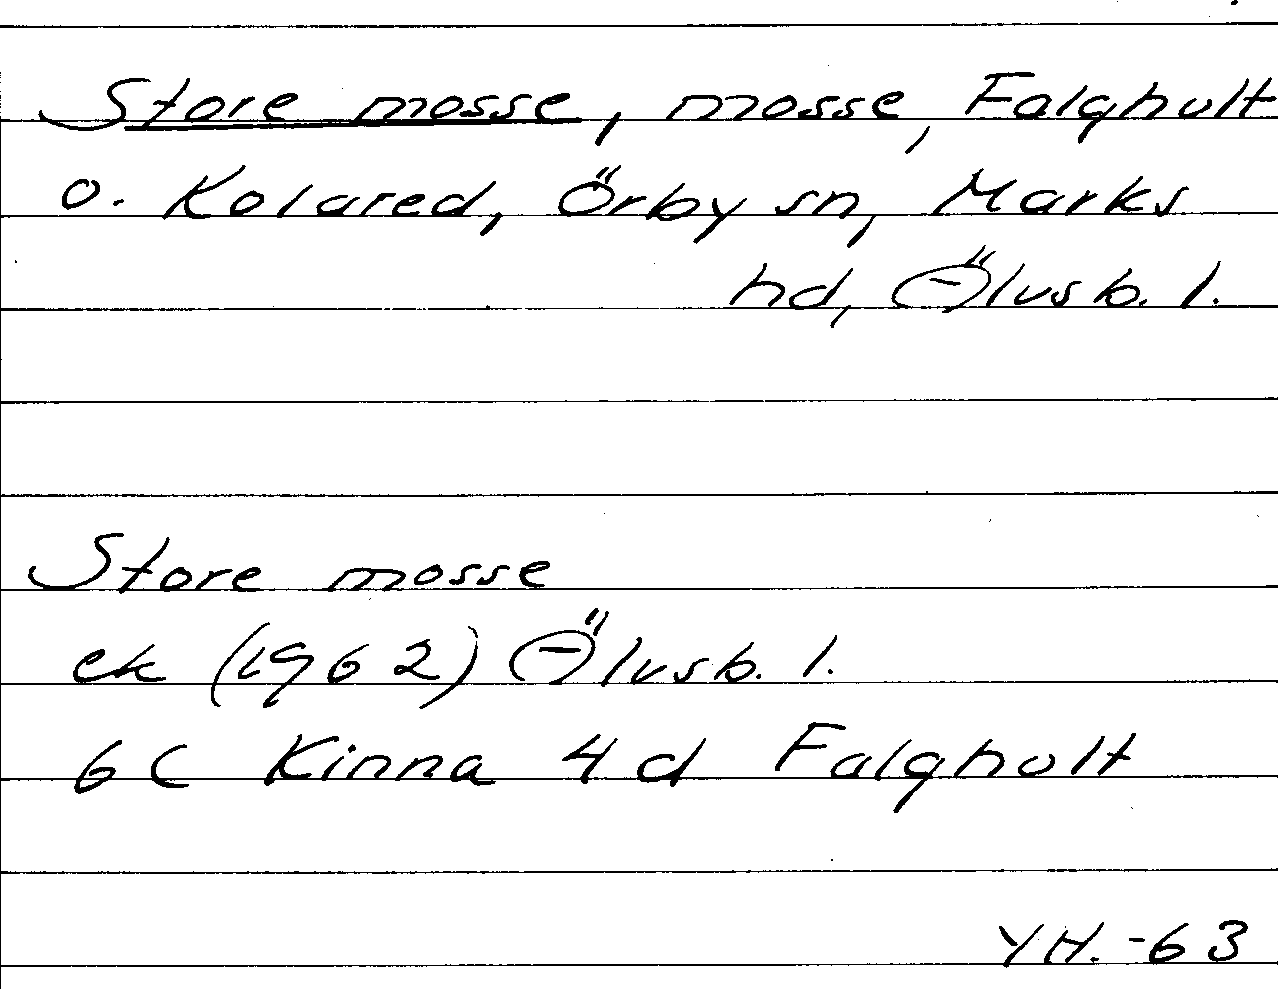 Store mosse, mosse, Falghult
o. Kolared, Örby sn, Marks
hd, Ölvsb. l.
Store mosse
ek (1962) Ölvsb. l.
6C Kinna 4d Falghult
YH.-63